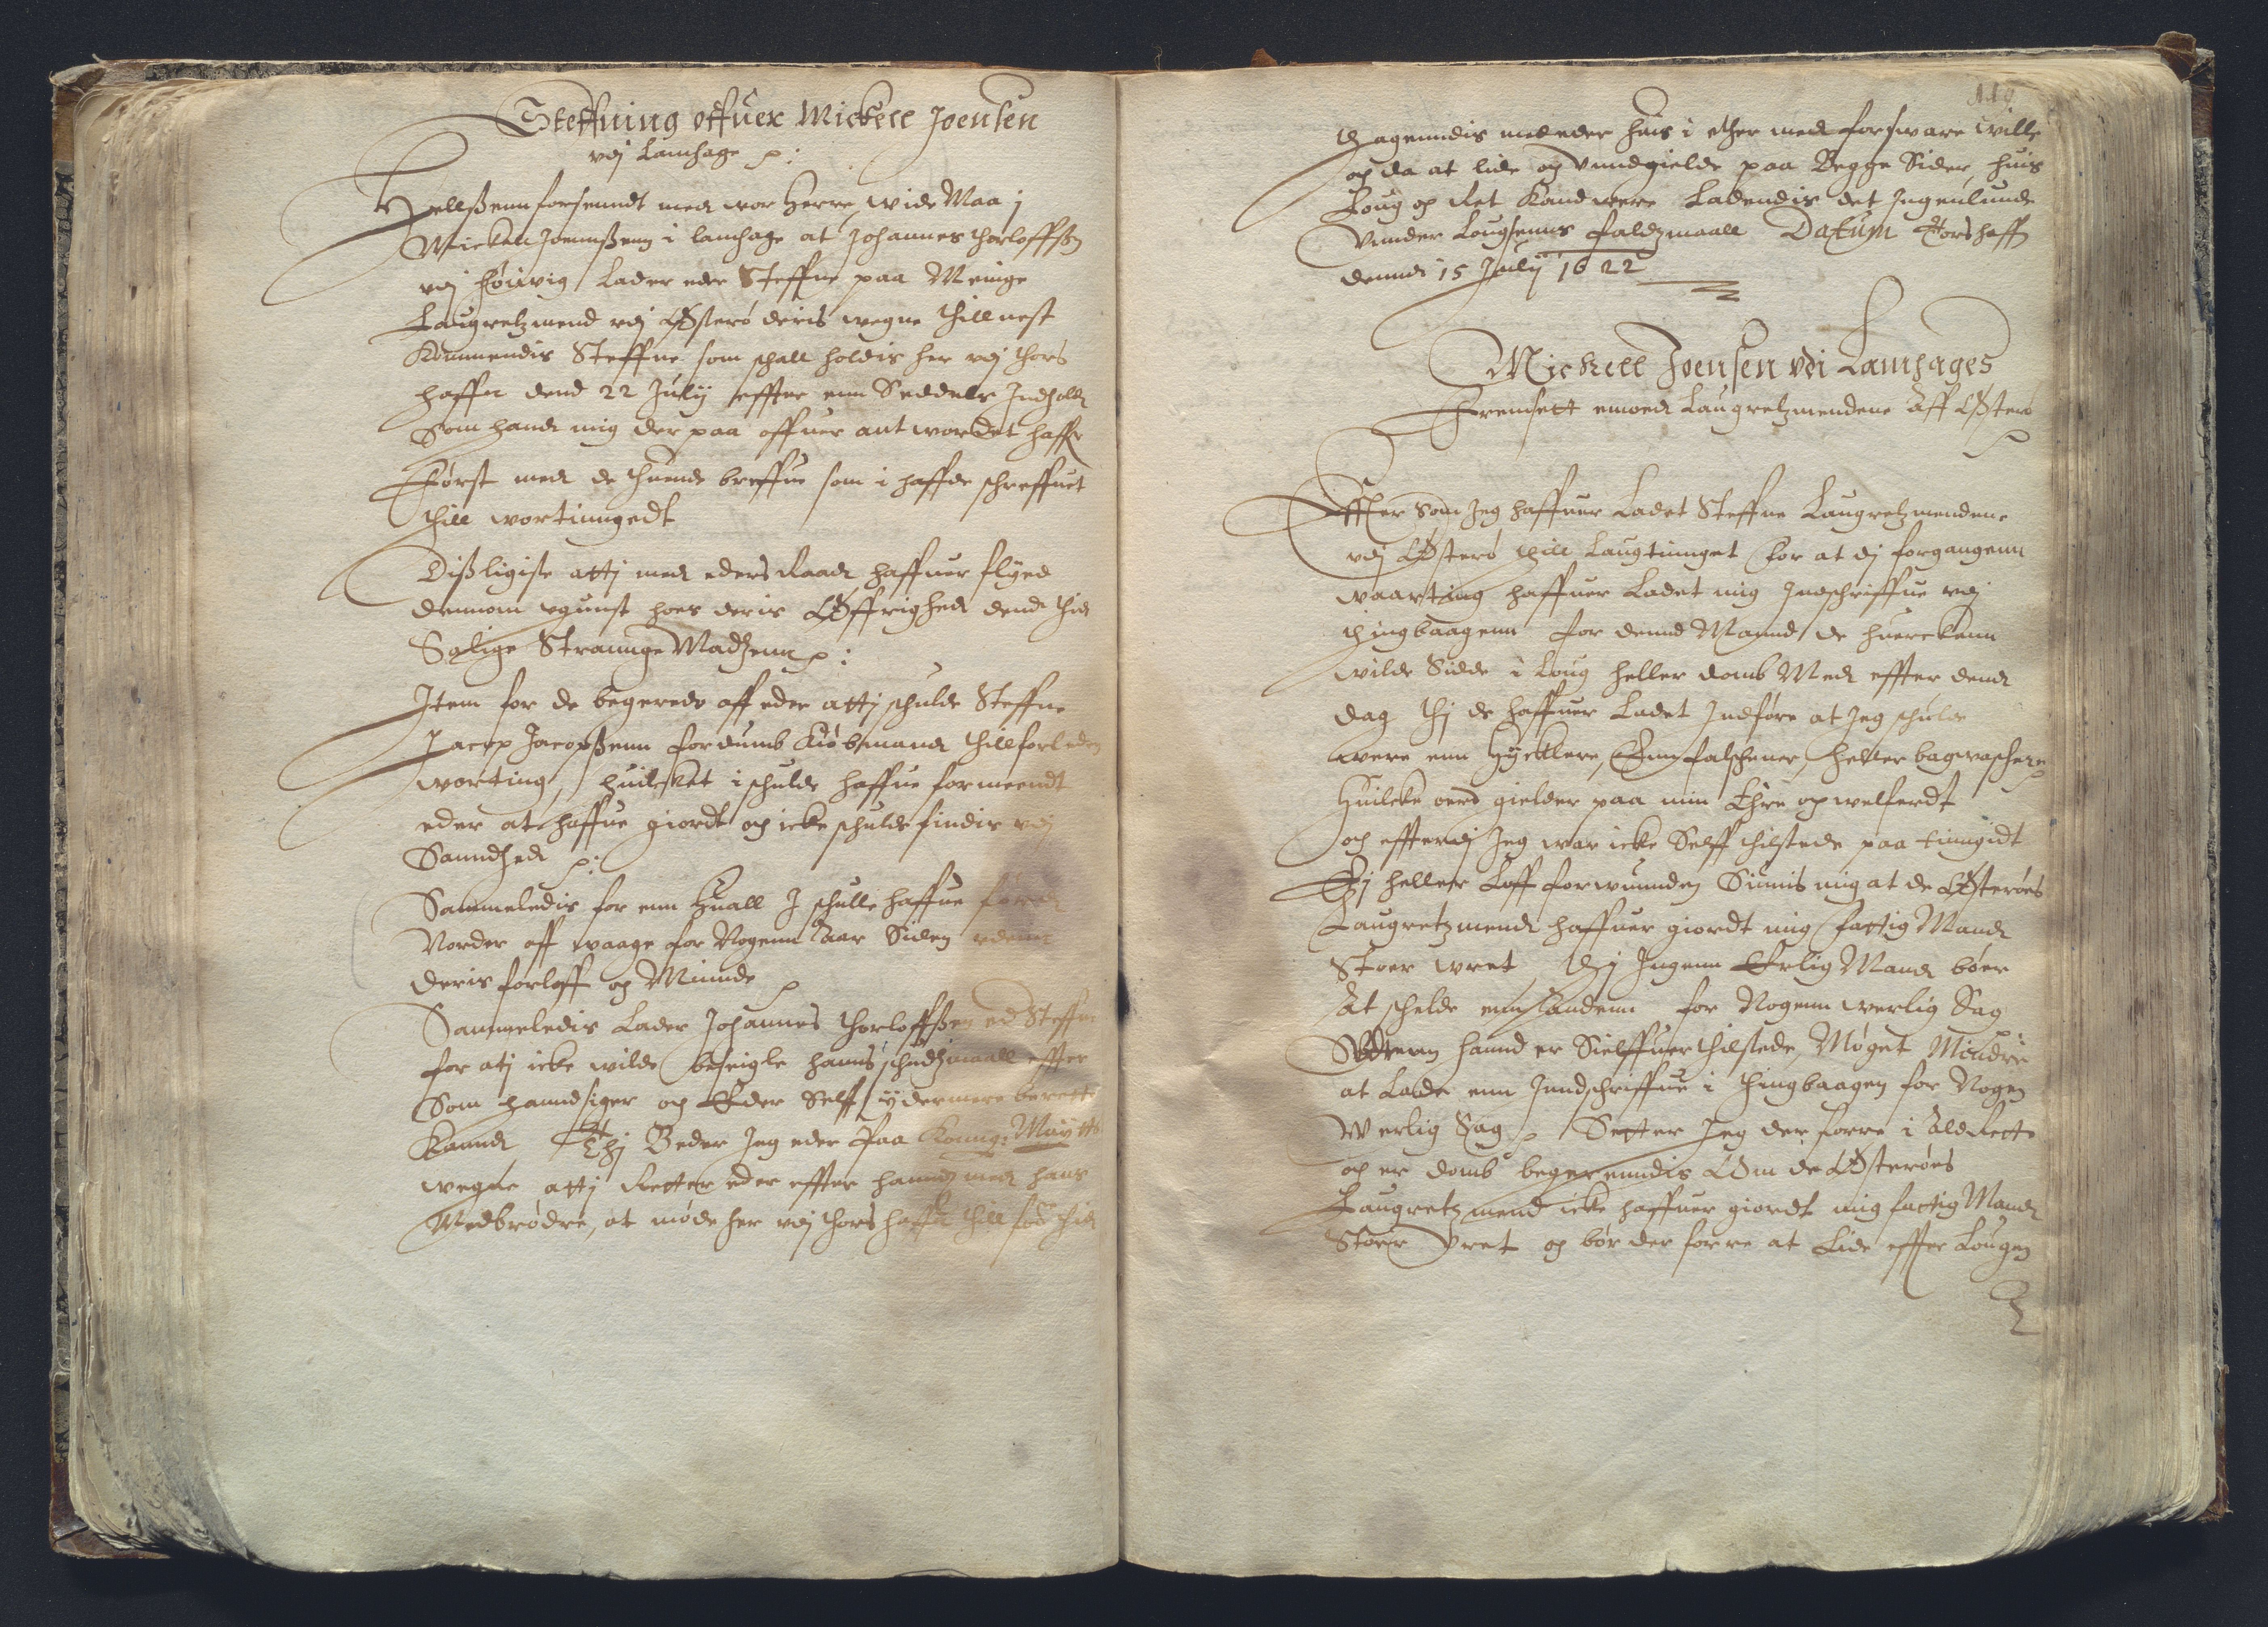 Steffning offuer Mickell Joensen
vdj Lamhage
Hellssenn forsenndt med wor Herre, wide Maa j
Mickell Joennssenn i lamhage at Johannes thorloffssøn
vdj Høiwig Lader eder Steffne paa Meinge
Laugretzmend vdj Østerø deris wegne thill nest
Kommendis Steffne som schall holdis her vdj thors
haffn dend 22 Julij effter enn Seddels Indhold
Som hand mig der paa offuer ant wordet haffr
Først med de thuende breffue som i haffde schreffuet
thill wortinngedt
Dissligiste attj med eders Raad haffuer flyed
dennom vgunst hoes deris Øffrighed dend thid
Salige Strannge Madzenn
Item for de begerede aff eder attj schulde Steffne
Jacop Jacopssenn fordumb Kiøbmand thillforleden
worting, huilcket i schulde haffue formeendt
eder at haffue giordt och icke schulde findis vdj
Sanndhed
Sammeledis for enn Huall I schulle haffue førdt
Norder aff waage for Nogenn Aar Siden vdenn
deris forloff och Minnde
Sammeledis Lader Johannes thorloffssen ed Steffne
for atj icke wilde beseigle hanns schudzmaall effter
Som hanndsiger och Eder Self ydermere berette
Kannd Thj Beder Jeg eder Paa Konng: Maytts
wegne attj Retter eder effter hannd med hans
Medbrødre, at møde her vdj thors haffn thill saa thid
119
thagenndis med eder huis i ether med forsware wille
och da at lide och vnndgielde paa Begge Sider, huis
Loug och Ret Kand were Ladendis det Ingenlunde
Vnnder Lougsenns faldzmaall Datum Thorshaffn
dennd 15 Julij 1622
Mickell Joensen vdi Lamhages
Fremsett emoed Laugretzmendene Aff Østerø
Effter Som Jeg haffuer Ladet Steffne Laugretzmendene
vdj Østerø thill Laugtinnget for at dj forgangenn
waarting haffuer Ladet mig Indschriffue vdj
thingbaagenn for dennd Mannd de huerckenn
wilde Sidde i Loug heller domb Med effter dend
dag thj de haffuer Ladet Indføre at Jeg schulde
were enn Hycklere, Enn falschener, heller bagwaschere
Huilcke oerd gielder paa min Ehre og welferdt
och effterdj Jeg war icke Self thilstede paa tinngedt
Ej heller Loff forwunnden Siunis mig at de Østerøes
Laugretzmend haffuer giordt mig fattig Mand
Stoer wret thj Ingenn Ehrlig Mand bøer
At schelde enn Andenn for Nogenn werlig Sag
Vden hannd er Sielffuer thilstede, Møget Mindre
at Lade enn Inndschriffue i thingbaagen for Nogen
Werlig Sag Setter Jeg der forre i Ald Rette
och er domb begerenndis Om de Østerøes
Laugretzmend icke haffuer giordt mig fattig Mand
Stoer Vret och bør der forre at Lide effter Lougen